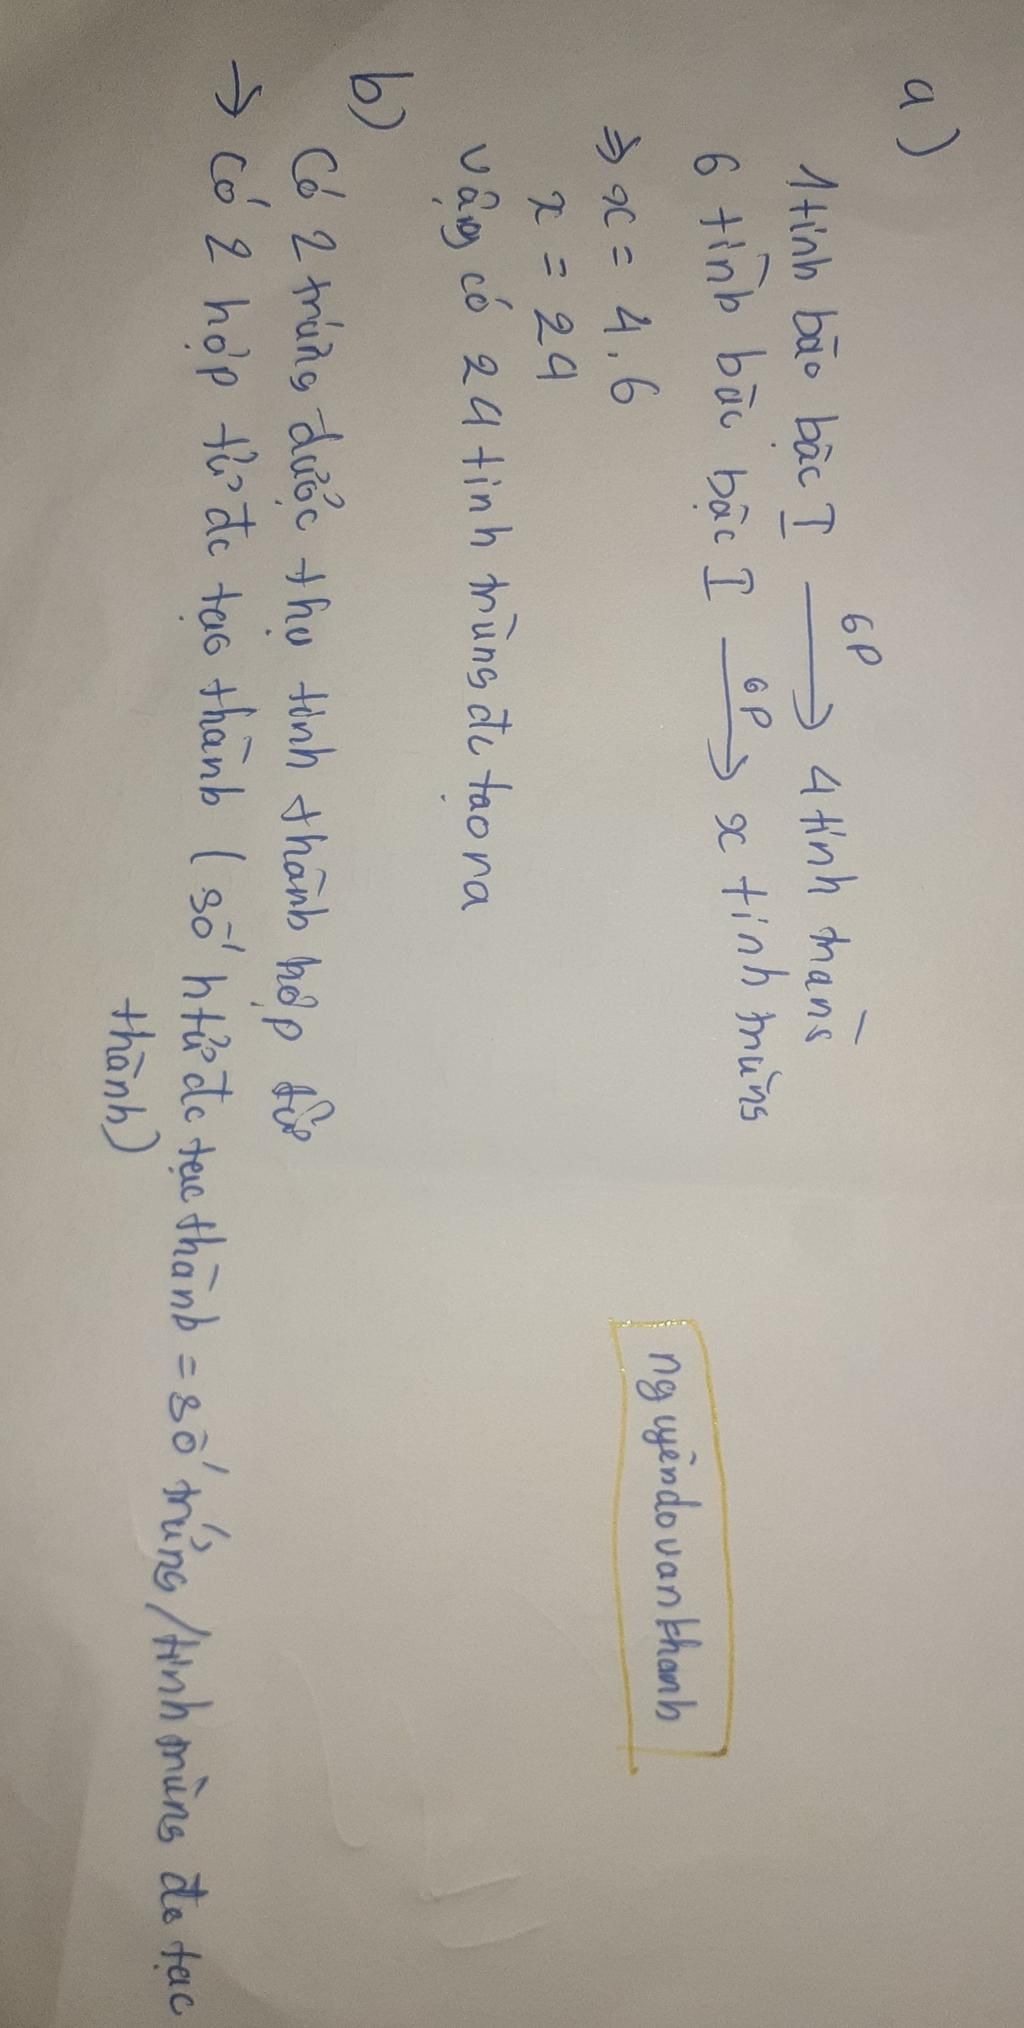 a)
1 tinh bào bậc I GP → 4 tinh trùng
6 tinh bào bậc I GP → x tinh trùng
⇒ x = 4.6
x = 24
vậy có 24 tinh trùng đc tạo ra
b)
Có 2 trứng được thụ tinh thành hợp tử
→ Có 2 hợp tử đc tạo thành (số h tử đc tạo thành = số trứng / tinh trùng đc tạo
thành)
nguyendovankhanh